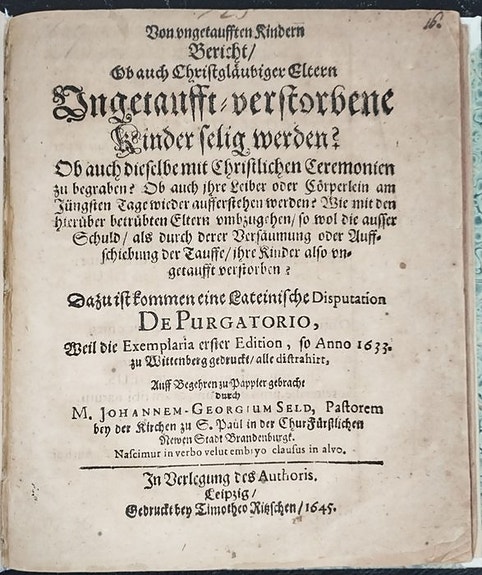 16.
Von vngetaufften Kindern
Bericht/
Ob auch Christgläubiger Eltern
Vngetaufft-verstorbene
Kinder selig werden?
Ob auch dieselbe mit Christlichen Ceremonien
zu begraben? Ob auch jhre Leiber oder Cörperlein am
Jüngsten Tage wieder aufferstehen werden? Wie mit den
hierüber betrübten Eltern vmbzugehen/ so wol die ausser
Schuld/ als durch derer Versäumung oder Auff-
schiebung der Tauffe/ jhre Kinder also vn-
getaufft verstorben?
Dazu ist kommen eine Lateinische Disputation
DE PURGATORIO,
Weil die Exemplaria erster Edition, so Anno 1633.
zu Wittenberg gedruckt/ alle distrahirt,
Auff Begehren zu Pappier gebracht
durch
M. JOHANNEM-GEORGIUM SELD, Pastorem
bey der Kirchen zu S. Paul in der ChurFürstlichen
Newen Stadt Brandenburgk.
Nascimur in verbo velut embryo clausus in alvo.
In Verlegung des Authoris.
Leipzig/
Gedruckt bey Timotheo Ritzschen/ 1645.